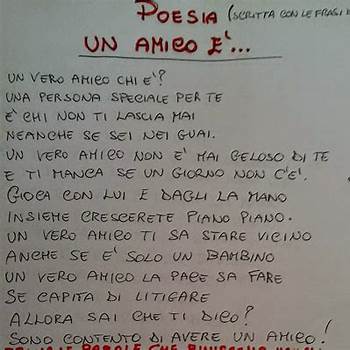 POESIA (SCRITTA CON LE FRASI
UN AMICO E'...
UN VERO AMICO CHI E'?
UNA PERSONA SPECIALE PER TE
E' CHI NON TI LASCIA MAI
NEANCHE SE SEI NEI GUAI.
UN VERO AMICO NON E' MAI GELOSO DI TE
E TI MANCA SE UN GIORNO NON C'E'.
GIOCA CON LUI E DAGLI LA MANO
INSIEME CRESCERETE PIANO PIANO.
UN VERO AMICO TI SA STARE VICINO
ANCHE SE E' SOLO UN BAMBINO
UN VERO AMICO LA PACE SA FARE
SE CAPITA DI LITIGARE
ALLORA SAI CHE TI DICO?
SONO CONTENTO DI AVERE UN AMICO!
PAROLE CHE